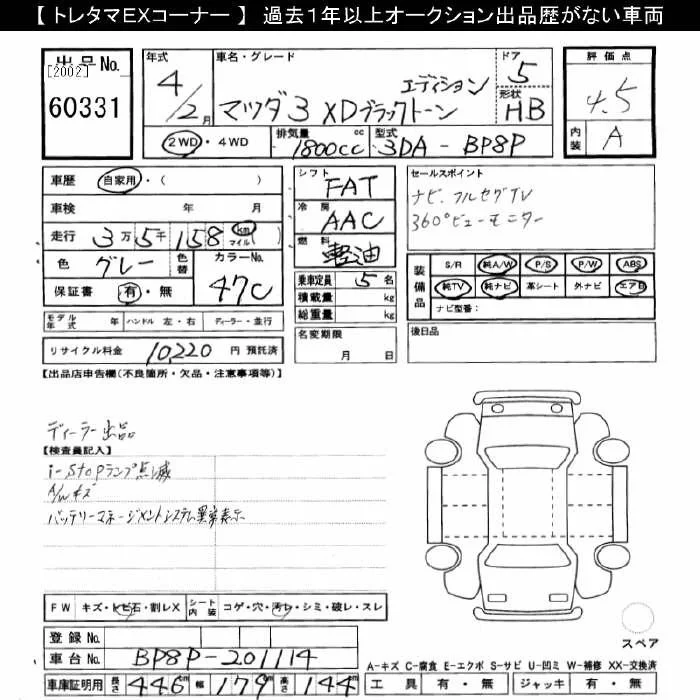 【 トレタマEXコーナー 】 過去1年以上オークション出品歴がない車両
出品No. [2002] 60331
年式 4/2月
車名・グレード マツダ3 XDブラックトーンエディション
ドア 5
形状 HB
評価点 4.5
内装 A
2WD・4WD
排気量 1800cc cc
型式 3DA-BP8P
車歴 自家用・( )
車検 年 月
走行 3万5千158 km マイル ( )
色 グレー 色替 カラーNo. 47C
保証書 有・無
シフト FAT
冷房 AAC
燃料 軽油
乗車定員 5名
積載量 kg
総重量 kg
セールスポイント
ナビ、フルセグTV
360°ビューモニター
装備品 S/R 純A/W P/S P/W ABS
純TV 純ナビ 革シート 外ナビ エアB
ナビ型番:
モデル年式 年 ハンドル 左・右 ディーラー・並行
リサイクル料金 10220 円 預託済
名変期限 月 日
後日品
【出品店申告欄(不良箇所・欠品・注意事項等)】
ディーラー出品
【検査員記入】
i-stopランプ点滅
A/Wキズ
バッテリーマネージメントシステム異常表示
FW キズ・トビ石・割レX シート内装 コゲ・穴・汚レ・シミ・破レ・スレ
登録No.
車台No. BP8P-201114
車庫証明用 長さ 446cm 幅 179cm 高さ 144cm
スペア
A-キズ C-腐食 E-エクボ S-サビ U-凹ミ W-補修 XX-交換済
工具 有・無 ジャッキ 有・無